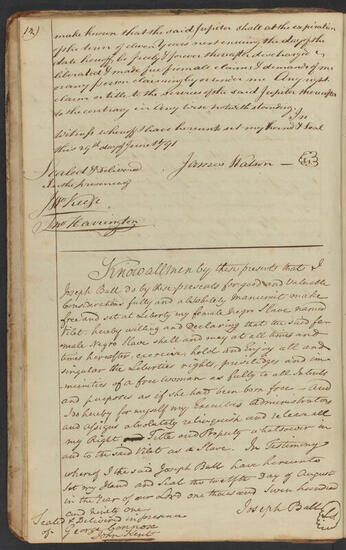 12)
make known that the said Jupiter shall at the expiration
of the term of eleven Years next ensuing the day of the
date hereof, be freely & forever thereafter discharged &
liberated & made free from all claim & demand of me
or any person claiming by or under me Any right
claim or title to the Service of the said Jupiter thereafter
to the contrary in Any wise notwithstanding. In
Witness whereof I have hereunto set my hand & Seal
this 29th day of June 1791
Sealed & Delivered
In the presence of
James Watson
Jno Harrington
Know all men by these presents that I
Joseph Ball Do by these presents for good and Valuable
Consideration fully and absolutely Manumit make
free and set at Liberty my female Negro Slave named
Vilet. hereby willing and Declaring that the said fe-
male Negro Slave shall and may at all times and
times hereafter, exercise, hold and enjoy all and
singular the Liberties rights, priviledges and im-
munities of a free woman as fully to all Intents
and purposes as if she had been born free - And
I do hereby for myself my Executors Administrators
and Assigns absolutely relinquish and release all
my Right Title and Property whatsoever in
and to the said Vilet as a Slave. In Testimony
whereof I the said Joseph Ball have hereunto
set my Hand and Seal the twelfth Day of August
in the Year of our Lord one thousand Seven hundred
and ninety one
Joseph Ball
Sealed & Delivered in presence
of George Connose
John Kent